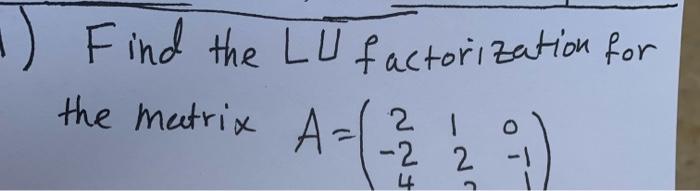 1) Find the LU factorization for
the matrix A = ( 2 1 0
-2 2 -1
4